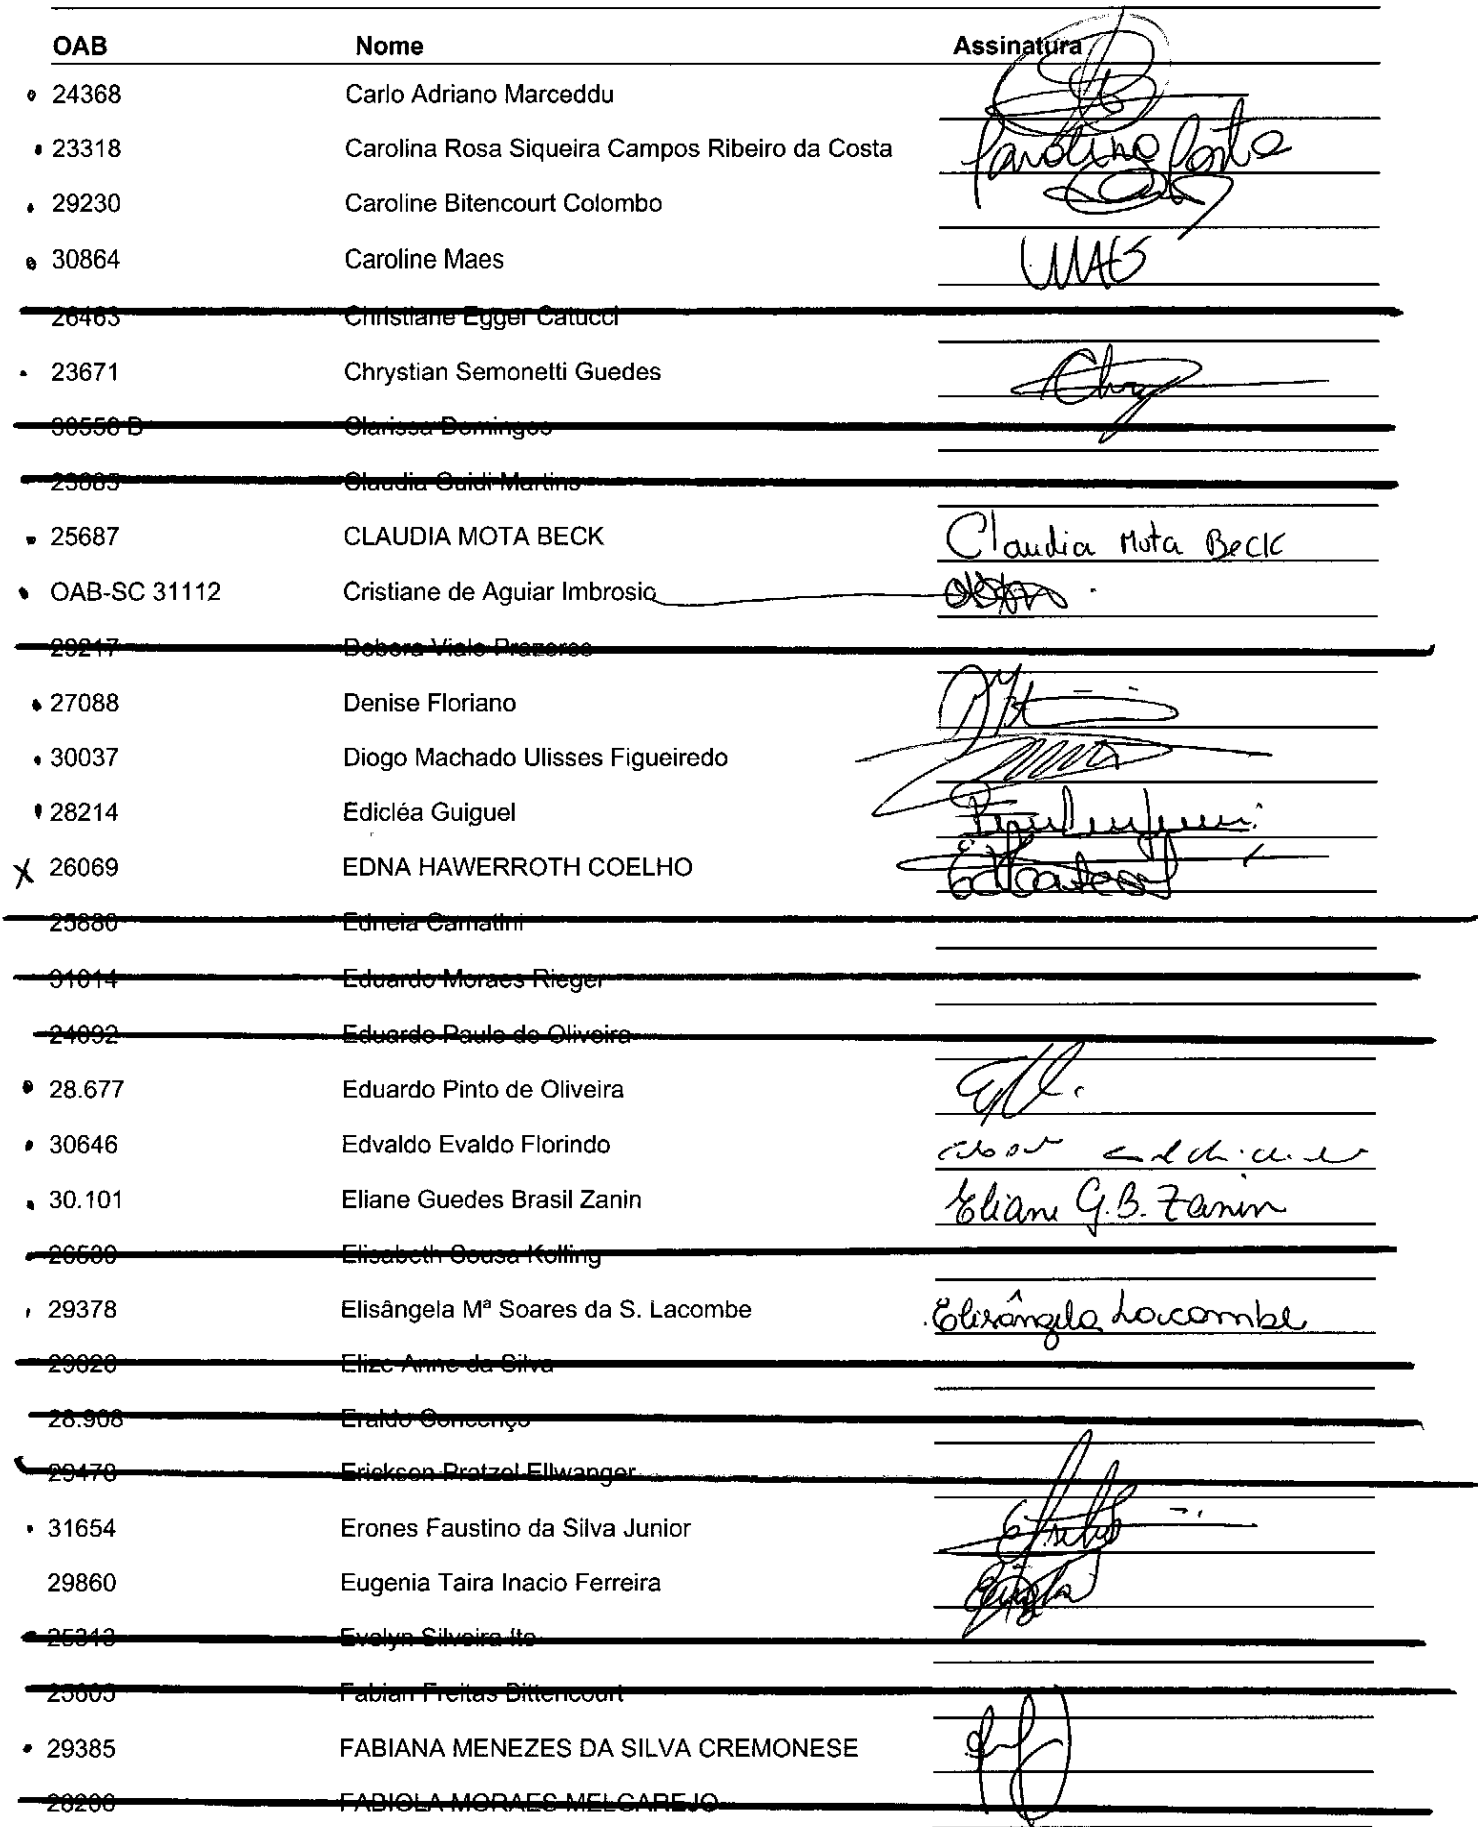 OAB Nome Assinatura
24368 Carlo Adriano Marceddu
23318 Carolina Rosa Siqueira Campos Ribeiro da Costa Carolina Costa
29230 Caroline Bitencourt Colombo
30864 Caroline Maes MAES
26463 Christiane Egger Catucci
23671 Chrystian Semonetti Guedes Chry
30558 B Clarissa Domingos
Claudia Guidi Martins
25687 CLAUDIA MOTA BECK Claudia Mota Beck
OAB-SC 31112 Cristiane de Aguiar Imbrosio
29217 Debora Viale Prazeres
27088 Denise Floriano
30037 Diogo Machado Ulisses Figueiredo
28214 Edicléa Guiguel
X 26069 EDNA HAWERROTH COELHO
Edneia Camatini
31014 Eduardo Moraes Rieger
24092 Eduardo Paulo de Oliveira
28.677 Eduardo Pinto de Oliveira
30646 Edvaldo Evaldo Florindo
30.101 Eliane Guedes Brasil Zanin Eliane G.B. Zanin
Elisabeth Sousa Kolling
29378 Elisângela Mª Soares da S. Lacombe Elisângela Lacombe
Elize Anne da Silva
28.908 Eraldo Concenço
29478 Erickson Pratzel Ellwanger
31654 Erones Faustino da Silva Junior
29860 Eugenia Taira Inacio Ferreira
25313 Evelyn Silveira Ito
Fabian Freitas Bittencourt
29385 FABIANA MENEZES DA SILVA CREMONESE
FABIOLA MORAES MELGAREJO